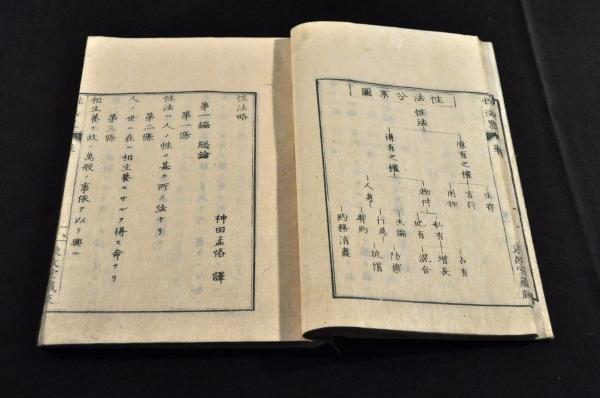 性法分系圖
性法
固有之權
生存
言行
用物
得有之權
物件
私有
占有
増長
混合
他有
人身
天倫
防禦
行為
抵償
契約
約務消盡
性法略
神田孟恪 譯
第一編 總論
第一條
性法ハ人ノ性ニ基ク所ノ法ナリ
第二條
人ノ世ニ在ル相生養セサルヲ得ス命ナリ
第三條
相生養ス故ニ萬般ノ事依テ以テ興ル